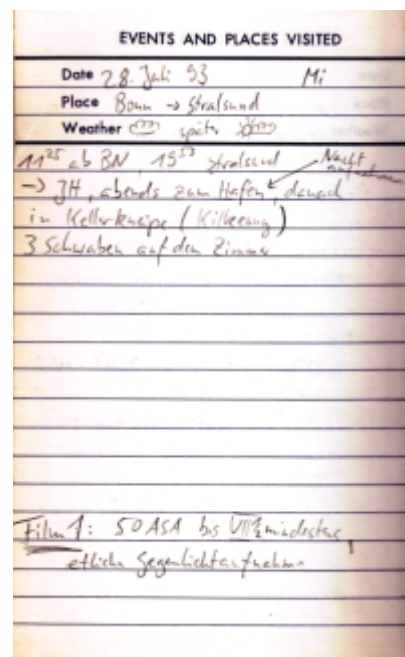 EVENTS AND PLACES VISITED
Date 28. Juli 93 Mi
Place Bonn -> Stralsund
Weather später
11²⁵ ab BN, 19⁵³ Stralsund Nacht
-> JH, abends zum Hafen, danach
in Kellerkneipe (Kilkenny)
3 Schwaben auf dem Zimmer
Film 1: 50 ASA bis mindestens
etliche Gegenlichtaufnahmen